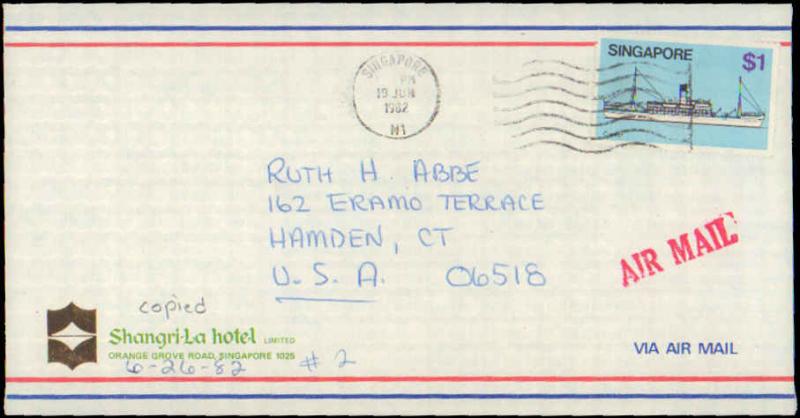 SINGAPORE
PM
19 JUN
1982
M1
SINGAPORE $1
RUTH H. ABBE
162 ERAMO TERRACE
HAMDEN, CT
U.S.A. 06518
AIR MAIL
copied
Shangri-La hotel LIMITED
ORANGE GROVE ROAD, SINGAPORE 1025
6-26-82 # 2
VIA AIR MAIL